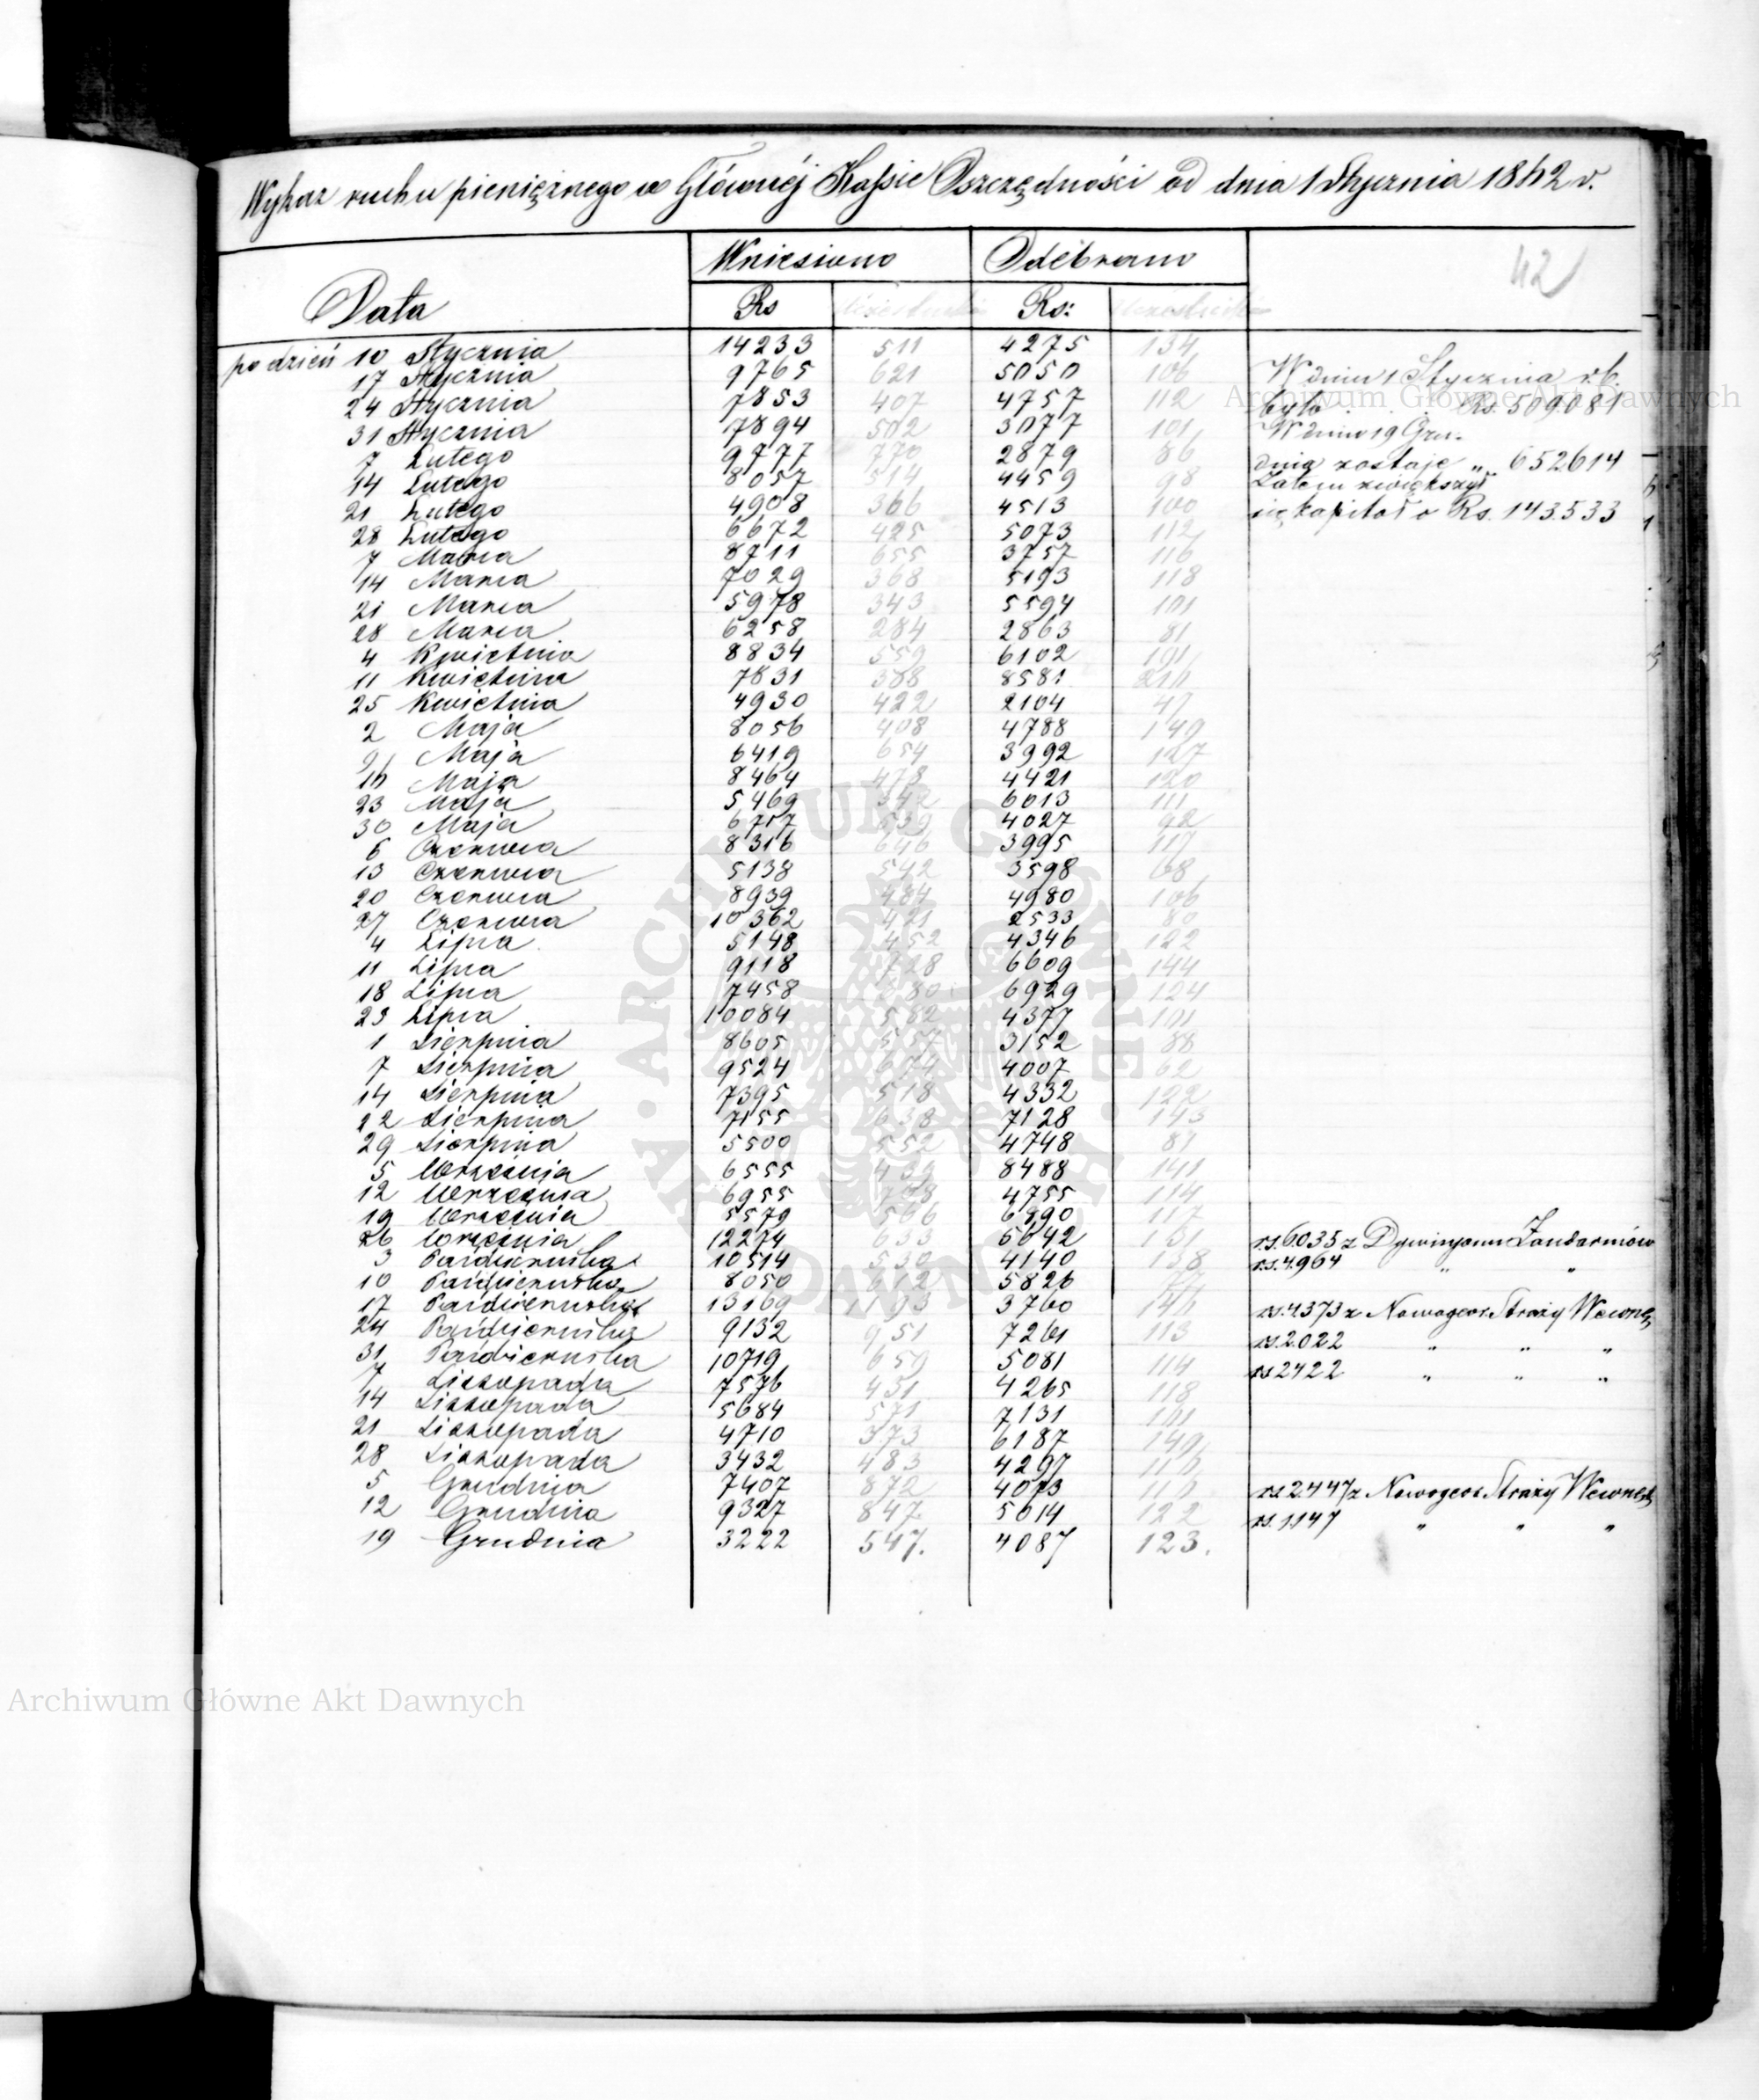 Wykaz ruchu pieniężnego w Głównéj Kassie Oszczędności od dnia 1 Stycznia 1842 r.
42
Data Wniesiono Odebrano
Rs Uczestników Rs: Uczestników
po dzień 10 Stycznia 14233 511 4275 134
17 Stycznia 9765 621 5050 106
24 Stycznia 7853 407 4757 112
31 Stycznia 7894 502 3077 101
7 Lutego 9777 770 2879 86
14 Lutego 8057 514 4459 98
21 Lutego 4908 366 4513 100
28 Lutego 6672 425 5073 112
7 Marca 8711 655 3757 116
14 Marca 7029 368 5193 118
21 Marca 5978 343 5594 101
28 Marca 6258 284 2863 81
4 Kwietnia 8834 559 6102 191
11 Kwietnia 7831 388 8581
25 Kwietnia 4930 422 2104 47
2 Maja 8056 408 4788 149
9 Maja 6419 654 3992 127
16 Maja 8464 478 4421 120
23 Maja 5469 342 6013 111
30 Maja 6717 539 4027 92
6 Czerwca 8316 646 3995 117
13 Czerwca 5138 542 3598 68
20 Czerwca 8939 484 4980 106
27 Czerwca 10362 421 2533 80
4 Lipca 5148 452 4346 122
11 Lipca 9118 728 6609 144
18 Lipca 7458 6929 124
23 Lipca 10084 582 4377 101
1 Sierpnia 8605 557 3152 88
7 Sierpnia 9524 674 4007 62
14 Sierpnia 7395 518 4332 122
22 Sierpnia 7155 638 7128 143
29 Sierpnia 5500 552 4748 81
5 Września 6555 439 8488 141
12 Września 6955 4755 114
19 Września 5579 566 6890 117
26 Września 12274 633 6642 131
3 Października 10514 530 4140 138
10 Października 8050 612 5826
17 Października 13169 1193 3760 146
24 Października 9132 951 7261 113
31 Października 10719 659 5081 114
7 Listopada 7576 431 4265 118
14 Listopada 5684 571 7131 181
21 Listopada 4710 373 6187 149
28 Listopada 3432 483 4297 116
5 Grudnia 7407 872 4073 116
12 Grudnia 9327 847 5014 122
19 Grudnia 3222 547. 4087 123.
W dniu 1 Stycznia r.b.
było . . . Rs. 509081
W dniu 19 Gru:
dnia zostaje „ 652614
Zatem zwiększył
się kapitał o Rs. 143.533
rs. 6.035 z Dywizyonu Żandarmów
rs. 4.964 " "
rs. 4373 z Nowogeor. Straży Wewnę
rs. 2.022 " " "
rs 2422 " " "
rs. 2.447 z Nowogeor. Straży Wewnę
rs. 1.147 " " "
Archiwum Główne Akt Dawnych
ARCHIWUM GŁÓWNE AKT DAWNYCH
Archiwum Główne Akt Dawnych